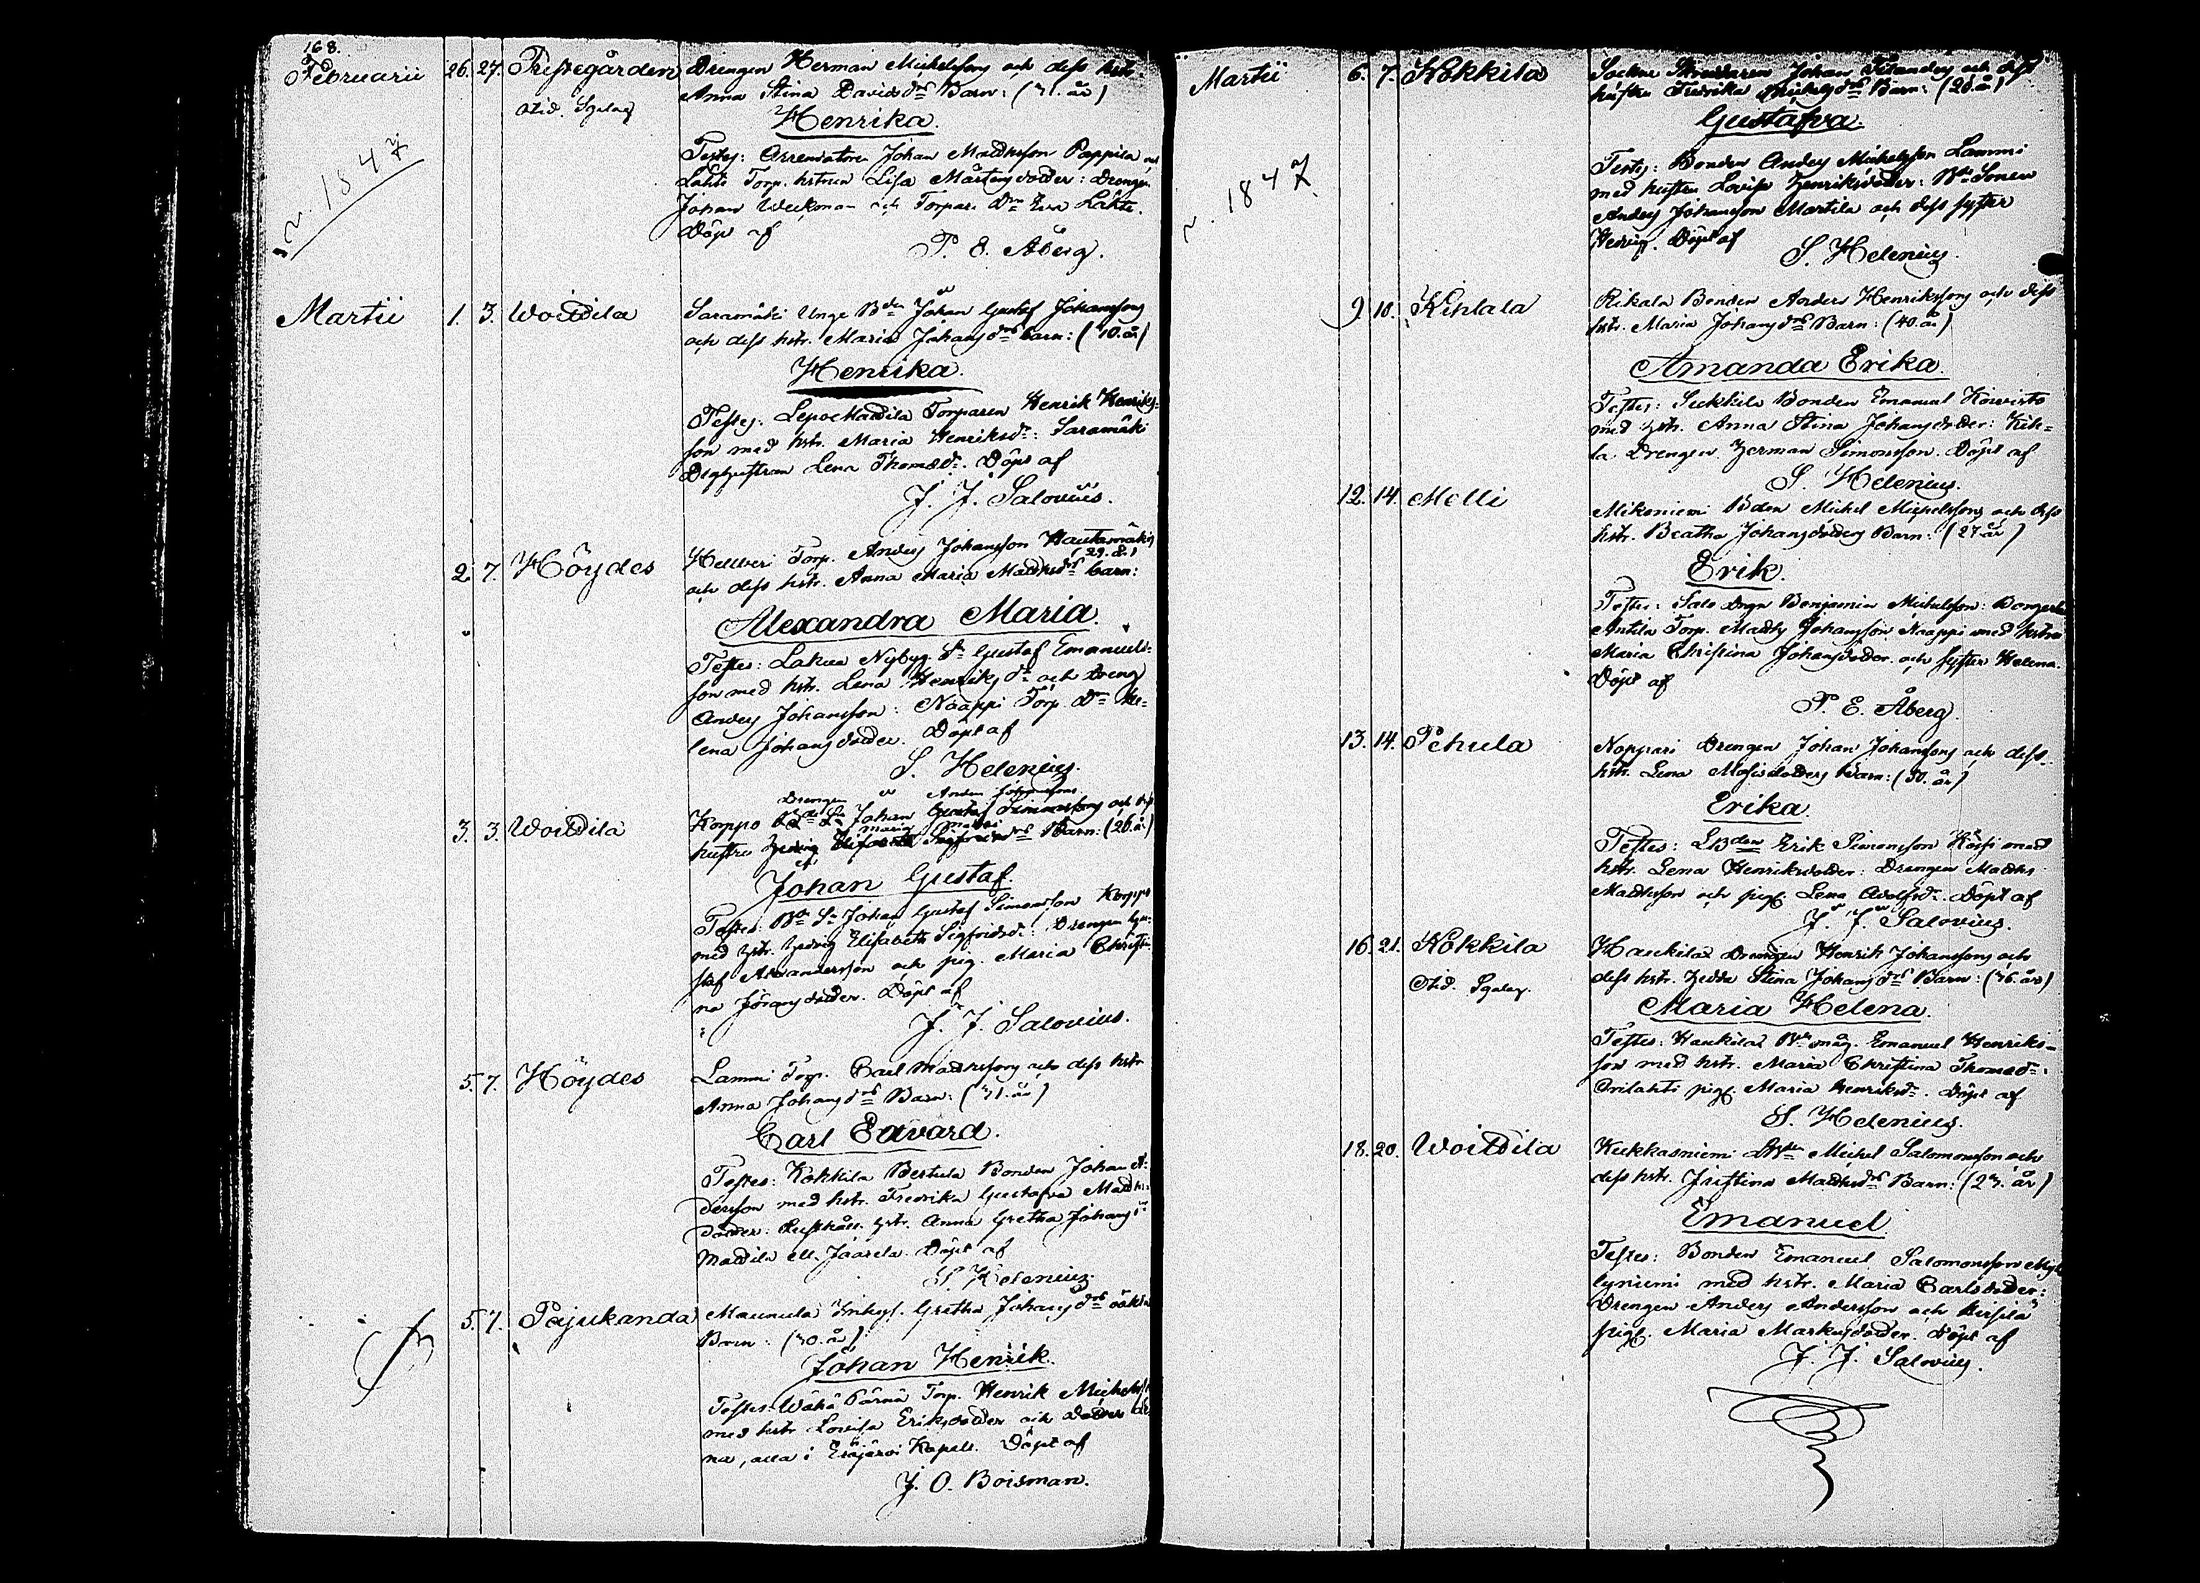 168.
Februarii 26. 27. Prestegården Drengen Herman Michelsson och dess hstr.
Anna Stina Davidsdrs Barn: (31. år)
Henrika.
1847
Testes: Arrendatoren Johan Mattsson Pappila och
Lahti Torp. hstrun Lisa Mårtensdotter: Drengen
Johan Weckman och Torpare Dn Eva Lahti.
Döpt af
P. E. Åberg.
Martii 1. 3. Woittila Saramäki Unge Bden Johan Gustaf Johansson
och dess hstr. Maria Johansdrs barn: (40. år)
Henrika.
Testes: Lepo Mattila Torparen Henrik Henriks-
son med hstr. Maria Henriksdr: Saramäki
Lena Thomasdr. Döpt af
J. J. Salovius.
2. 7. Höydes Torp. Anders Johansson Hautamäki
(29. å.)
och dess hstr. Anna Maria Mattsdrs barn:
Alexandra Maria.
Testes: Nybyg. Gustaf Emanuels-
son med hstr. Lena Henriksdr och Dreng
Anders Johansson: Naappi Torp. Dn He-
lena Johansdotter. Döpt af
S. Helenius.
Drengen Anders Johansson
3. 3. Woittila Korppo Johan Gustaf Simonsson och dess
Maria
hustru Hedvig Barn: (26. å.)
Johan Gustaf.
Testes: Bde Sn Johan Gustaf Simonsson Korppo
med hstr. Hedvig Elisabeth Sigfridsdr: Drengen Gu-
staf Alexandersson och pig. Maria Christi-
na Johansdotter. Döpt af
J. J. Salovius.
5. 7. Höydes Lammi Torp. Carl Mattsson och dess hstr
Anna Johansdrs Barn: (31. år)
Carl Edvard.
Testes: Kokkila Bertula Bonden Johan An-
dersson med hstr. Fredrika Gustafva Matts-
dotter: hstr. Anna Gretha Johansdr
Mattila ell. Jaarela. Döpt af
S. Helenius.
5. 7. Pajukanda Maunula Inhys. Gretha Johansdrs oäkta
Barn: (30. år)
Johan Henrik.
Testes: Wähä Pärnä Torp. Henrik Michelsson
med hstr Lovisa Eriksdotter och dotter
na, alla i Eräjärvi Kapell. Döpt af
J. O. Boisman.
Martii 6. 7. Kokkila Sockne Skräddaren Johan och dess
hustru Fredrika Michelsdrs Barn: (26. år)
Gustafva.
1847
Testes: Bonden Anders Michelsson Lammi
med hustru Lovisa Henriksdotter: Bde Sonen
Anders Johansson Martila och dess syster
Hedvig. Döpt af
S. Helenius.
9. 10. Kihlala Rikala Bonden Anders Henriksson och dess
hstr. Maria Johansdrs Barn: (40. år)
Amanda Erika.
Testes: Seckkila Bonden Emanuel Koivisto
med hstr. Anna Stina Johansdotter: Kih-
la Drengen Herman Simonsson. Döpt af
S. Helenius.
12. 14. Melli Mikoniemi Bden Michel Michelsson och dess
hstr. Beatha Johansdotters Barn: (27. år)
Erik.
Testes: Salo Drgn Benjamin Michelsson:
Antila Torp. Matts Johansson Naappi med hstru
Maria Christina Johansdotter och syster Helena.
Döpt af
P. E. Åberg.
13. 14. Pehula Noppari Drengen Johan Johansson och dess
hstr. Lena Mosisdotters Barn: (30. år)
Erika.
Testes: Erik Simonsson med
hstr. Lena Henriksdotter: Drengen Matths
Mattsson och pig. Lena Adolfsdr. Döpt af
J. J. Salovius.
16. 21. Kokkila Haukila Drengen Henrik Johansson och
dess hstr. Hedda Stina Johansdrs Barn: (36. år)
Maria Helena.
Testes: Haukila Bde måg. Emanuel Henriks-
son med hstr. Maria Christina Thomasdr.
pig. Maria Henriksdr. Döpt af
S. Helenius.
18. 20. Woittila Kukkasniemi Michel Salomonsson och
dess hstr. Justina Mattsdrs Barn: (23. år)
Emanuel.
Testes: Bonden Emanuel Salomonsson Myl-
lyniemi med hstr. Maria Carlsdotter:
Drengen Anders Andersson och
pig. Maria Markusdotter. Döpt af
J. J. Salovius.